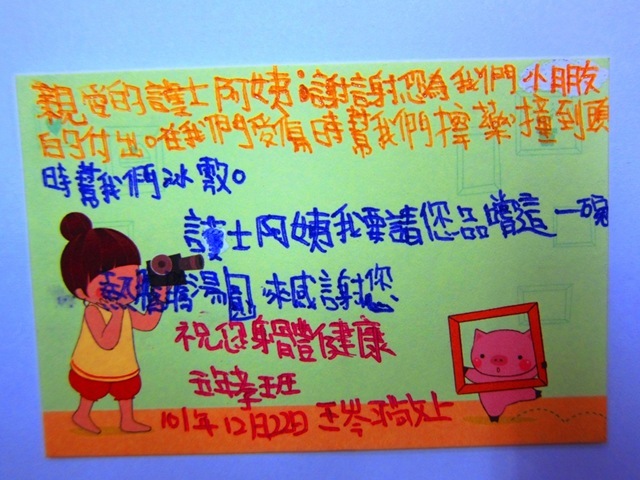 親愛的護士阿姨:謝謝您為我們小朋友
的付出。在我們受傷時幫我們擦藥、撞到頭
時幫我們冰敷。
護士阿姨我要請您品嚐這一碗
熱騰騰湯圓來感謝您
祝您身體健康
五年孝班
101年12月22日 王岑 敬上